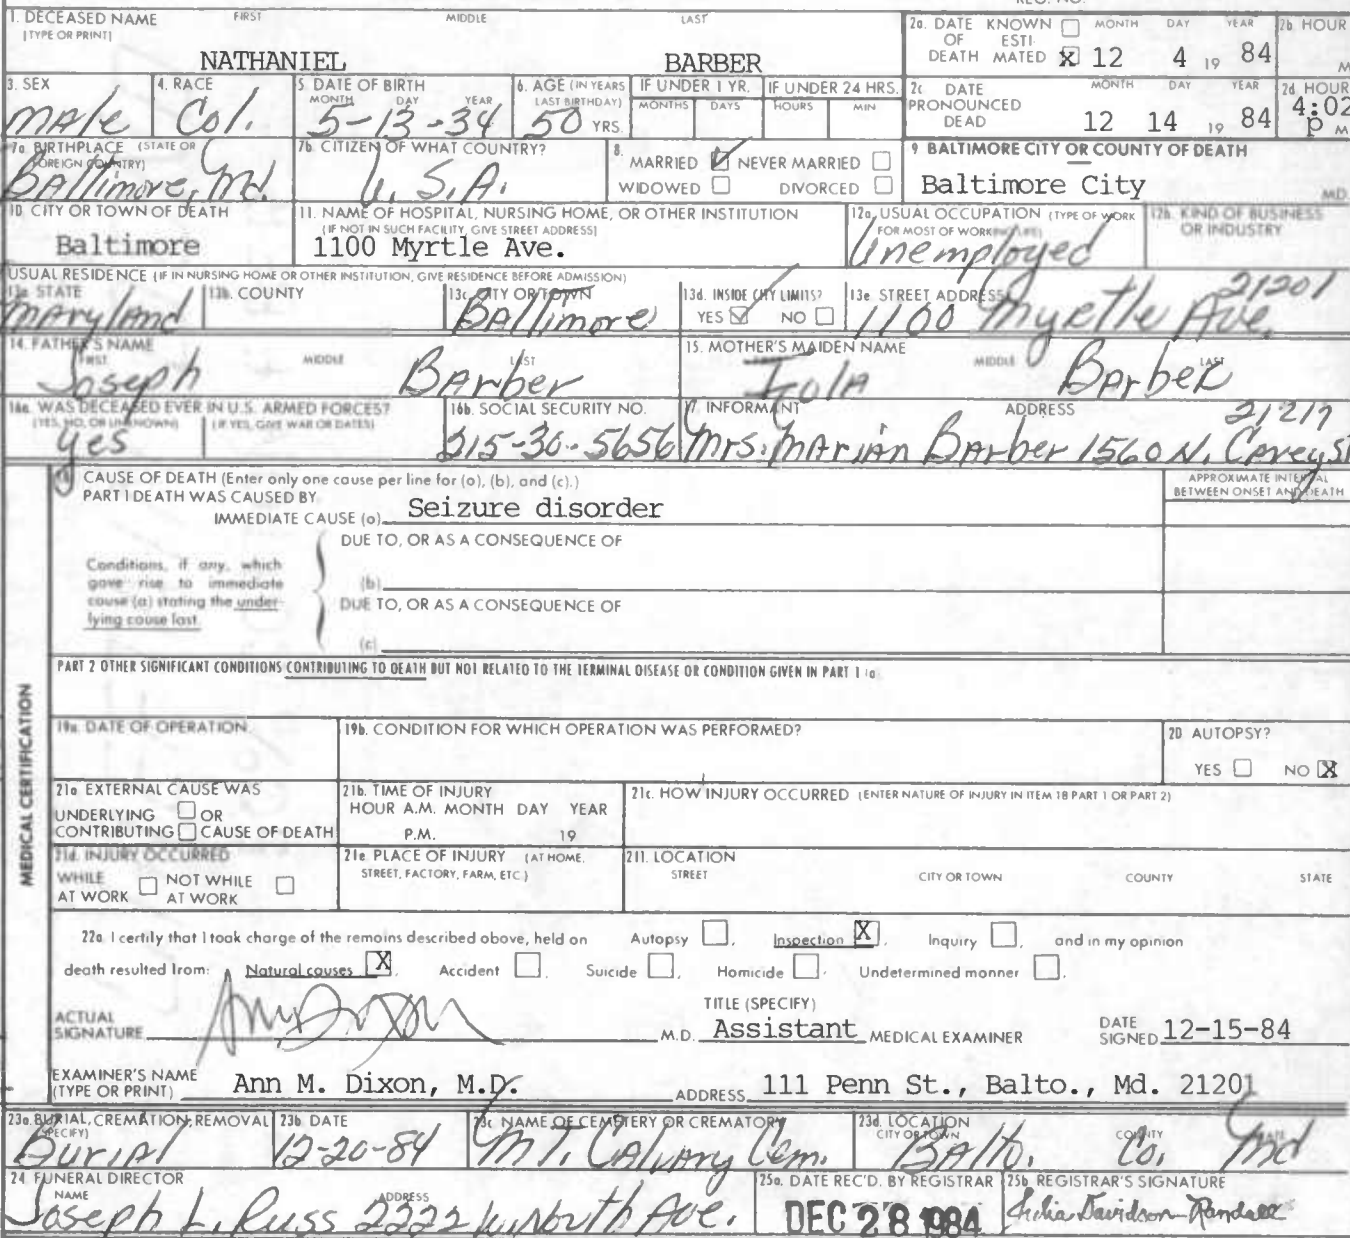 1. DECEASED NAME FIRST MIDDLE LAST
(TYPE OR PRINT)
NATHANIEL BARBER
2a. DATE KNOWN ☐ MONTH DAY YEAR
OF ESTI-
DEATH MATED ☒ 12 4 19 84
2b. HOUR
M
3. SEX
male
4. RACE
Col.
5. DATE OF BIRTH
MONTH DAY YEAR
5-13-34
6. AGE (IN YEARS
LAST BIRTHDAY)
50 YRS.
IF UNDER 1 YR.
MONTHS DAYS
IF UNDER 24 HRS.
HOURS MIN
2c DATE MONTH DAY YEAR
PRONOUNCED
DEAD 12 14 19 84
2d HOUR
4:02
P M
7a BIRTHPLACE (STATE OR
FOREIGN COUNTRY)
Baltimore, Md.
7b. CITIZEN OF WHAT COUNTRY?
U.S.A.
8.
MARRIED ☑ NEVER MARRIED ☐
WIDOWED ☐ DIVORCED ☐
9 BALTIMORE CITY OR COUNTY OF DEATH
Baltimore City
MD.
10. CITY OR TOWN OF DEATH
Baltimore
11. NAME OF HOSPITAL, NURSING HOME, OR OTHER INSTITUTION
(IF NOT IN SUCH FACILITY, GIVE STREET ADDRESS)
1100 Myrtle Ave.
12a. USUAL OCCUPATION (TYPE OF WORK
FOR MOST OF WORKING LIFE)
Unemployed
12b. KIND OF BUSINESS
OR INDUSTRY
USUAL RESIDENCE (IF IN NURSING HOME OR OTHER INSTITUTION, GIVE RESIDENCE BEFORE ADMISSION)
13a STATE
Maryland
13b. COUNTY
13c. CITY OR TOWN
Baltimore
13d. INSIDE CITY LIMITS?
YES ☑ NO ☐
13e STREET ADDRESS 21201
1100 Myrtle Ave.
14. FATHER'S NAME
FIRST MIDDLE LAST
Joseph Barber
15. MOTHER'S MAIDEN NAME
MIDDLE LAST
Iola Barber
16a. WAS DECEASED EVER IN U.S. ARMED FORCES?
(YES, NO, OR UNKNOWN) (IF YES, GIVE WAR OR DATES)
yes
16b. SOCIAL SECURITY NO.
215-30-5656
17. INFORMANT ADDRESS 21217
Mrs. Marian Barber 1560 N. Carey St
CAUSE OF DEATH (Enter only one cause per line for (a), (b), and (c).)
PART I DEATH WAS CAUSED BY
IMMEDIATE CAUSE (a) Seizure disorder
APPROXIMATE INTERVAL
BETWEEN ONSET AND DEATH
DUE TO, OR AS A CONSEQUENCE OF
Conditions, if any, which
gave rise to immediate
cause (a) stating the under-
lying cause last.
(b)
DUE TO, OR AS A CONSEQUENCE OF
(c)
PART 2 OTHER SIGNIFICANT CONDITIONS CONTRIBUTING TO DEATH BUT NOT RELATED TO THE TERMINAL DISEASE OR CONDITION GIVEN IN PART 1 (a)
MEDICAL CERTIFICATION
19a. DATE OF OPERATION
19b. CONDITION FOR WHICH OPERATION WAS PERFORMED?
20 AUTOPSY?
YES ☐ NO ☒
21a EXTERNAL CAUSE WAS
UNDERLYING ☐ OR
CONTRIBUTING ☐ CAUSE OF DEATH
21b. TIME OF INJURY
HOUR A.M. MONTH DAY YEAR
P.M. 19
21c. HOW INJURY OCCURRED (ENTER NATURE OF INJURY IN ITEM 18 PART 1 OR PART 2)
21d. INJURY OCCURRED
WHILE
AT WORK ☐ NOT WHILE
AT WORK ☐
21e PLACE OF INJURY (AT HOME,
STREET, FACTORY, FARM, ETC.)
21f. LOCATION
STREET CITY OR TOWN COUNTY STATE
22a. I certify that I took charge of the remains described above, held on Autopsy ☐, Inspection ☒, Inquiry ☐, and in my opinion
death resulted from: Natural causes ☒, Accident ☐, Suicide ☐, Homicide ☐, Undetermined manner ☐.
ACTUAL
SIGNATURE
M.D.
TITLE (SPECIFY)
Assistant MEDICAL EXAMINER
DATE
SIGNED 12-15-84
EXAMINER'S NAME
(TYPE OR PRINT) Ann M. Dixon, M.D.
ADDRESS 111 Penn St., Balto., Md. 21201
23a. BURIAL, CREMATION, REMOVAL
(SPECIFY)
Burial
23b. DATE
12-20-84
23c NAME OF CEMETERY OR CREMATORY
Mt. Calvary Cem.
23d. LOCATION
CITY OR TOWN COUNTY STATE
Balto. Co. Md
24 FUNERAL DIRECTOR
NAME ADDRESS
Joseph L. Russ 2222 W. North Ave.
25a. DATE REC'D. BY REGISTRAR
DEC 28 1984
25b REGISTRAR'S SIGNATURE
Julia Davidson-Randall